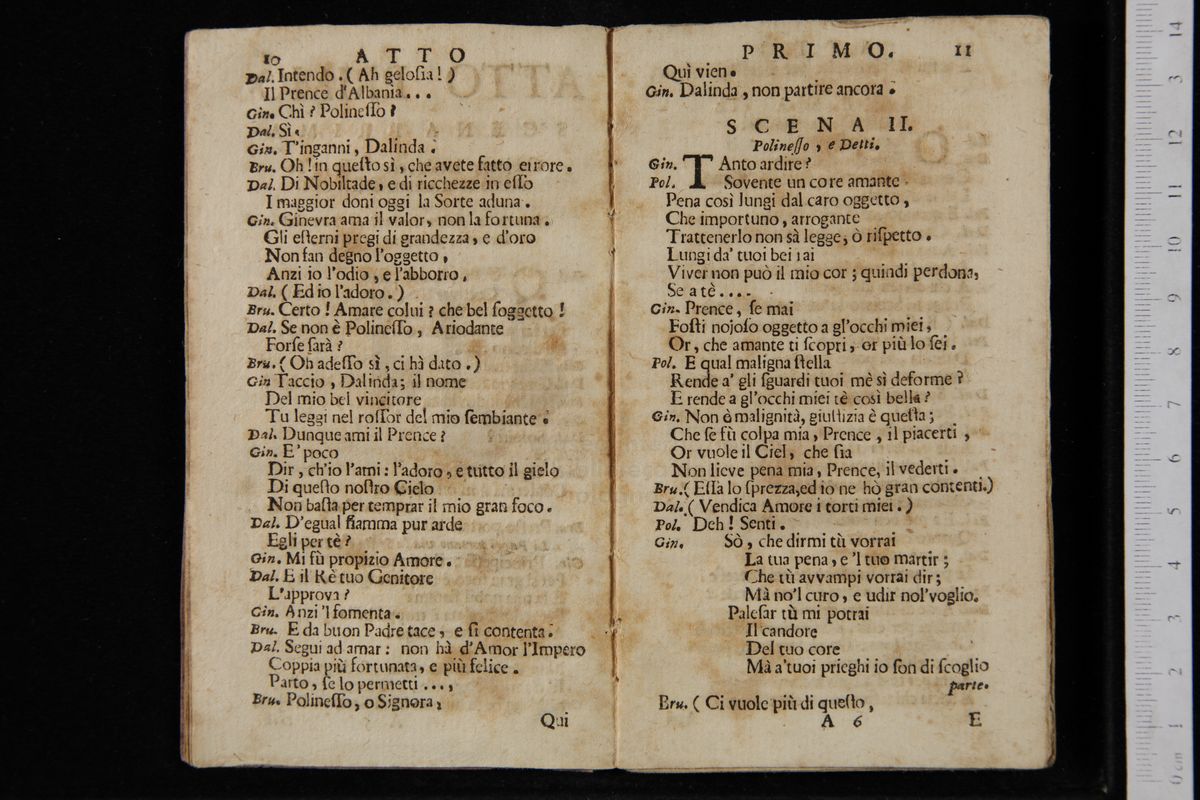 10 ATTO
Dal. Intendo. (Ah geloſia!)
Il Prence d'Albania...
Gin. Chì? Polineſſo?
Dal. Sì.
Gin. T'inganni, Dalinda.
Bru. Oh! in queſto sì, che avete fatto errore.
Dal. Di Nobiltade, e di ricchezze in eſſo
I maggior doni oggi la Sorte aduna.
Gin. Ginevra ama il valor, non la fortuna.
Gli eſterni pregi di grandezza, e d'oro
Non fan degno l'oggetto,
Anzi io l'odio, e l'abborro.
Dal. (Ed io l'adoro.)
Bru. Certo! Amare colui? che bel ſoggetto!
Dal. Se non è Polineſſo, Ariodante
Forſe ſarà?
Bru. (Oh adeſſo sì, ci hà dato.)
Gin Taccio, Dalinda; il nome
Del mio bel vincitore
Tu leggi nel roſſor del mio ſembiante.
Dal. Dunque ami il Prence?
Gin. E' poco
Dir, ch'io l'ami: l'adoro, e tutto il gielo
Di queſto noſtro Cielo
Non baſta per temprar il mio gran foco.
Dal. D'egual fiamma pur arde
Egli per tè?
Gin. Mi fù propizio Amore.
Dal. E il Rè tuo Genitore
L'approva?
Gin. Anzi 'l fomenta.
Bru. E da buon Padre tace, e ſi contenta.
Dal. Segui ad amar: non hà d'Amor l'Impero
Coppia più fortunata, e più felice.
Parto, ſe lo permetti...,
Bru. Polineſſo, o Signora,
Qui
PRIMO. 11
Quì vien.
Gin. Dalinda, non partire ancora.
SCENA II.
Polineſſo, e Detti.
Gin. TAnto ardire?
Pol. Sovente un core amante
Pena così lungi dal caro oggetto,
Che importuno, arrogante
Trattenerlo non sà legge, ò riſpetto.
Lungi da' tuoi bei rai
Viver non può il mio cor; quindi perdona,
Se a tè....
Gin. Prence, ſe mai
Foſti nojoſo oggetto a gl'occhi miei,
Or, che amante ti ſcopri, or più lo ſei.
Pol. E qual maligna ſtella
Rende a' gli ſguardi tuoi mè sì deforme?
E rende a gl'occhi miei tè così bella?
Gin. Non è malignità, giuſtizia è queſta;
Che ſe fù colpa mia, Prence, il piacerti,
Or vuole il Ciel, che ſia
Non lieve pena mia, Prence, il vederti.
Bru. (Eſſa lo ſprezza,ed io ne hò gran contenti.)
Dal. (Vendica Amore i torti miei.)
Pol. Deh! Senti.
Gin. Sò, che dirmi tù vorrai
La tua pena, e 'l tuo martir;
Che tù avvampi vorrai dir;
Mà no'l curo, e udir nol'voglio.
Paleſar tù mi potrai
Il candore
Del tuo core
Mà a'tuoi prieghi io ſon di ſcoglio
parte.
Bru. (Ci vuole più di queſto,
A 6 E
14
13
12
11
10
9
8
7
6
5
4
3
2
1
0 cm